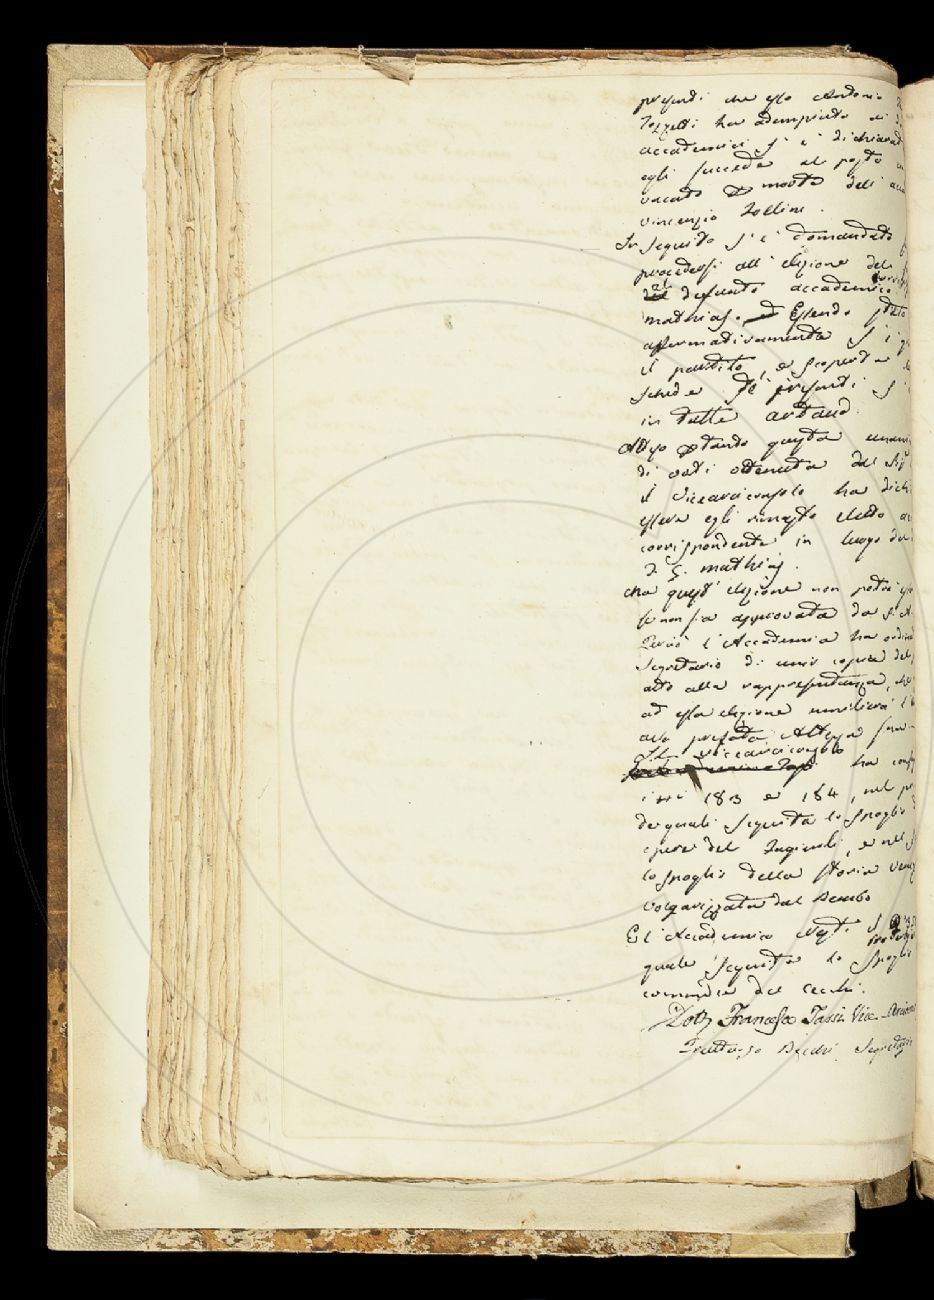 presenti che esso Antonio
Tozzetti ha adempiuto ai
accademici s'è dichiarat
egli succede al posto
vacato morte dell'acca
vincenzio Follini.
In seguito s'è domandato
procedersi all'elezione del
al defunto accademico
mathias. Essendo stato
affermativamente s'è
il partito, e scoperte le
schede de' presenti s'è
in tutte artaud.
Atteso stante questa unani
di voti ottenuta dal Sigr
il Vicearciconsolo ha dichi
essere egli rimasto eletto ac
corrispondente in luogo del
d. S. mathias.
Ma quest'elezione non potrà
se non sia approvata da S. A.
Perciò l'Accademia ha ordinat
Segretario di unir copia del
atto alla rappresentanza, che
ad essa elezione umilierà
alla prefata Altezza Sua
Il vicearciconsolo
ha
i tti 183 e 184, nel
de quali seguita lo spoglio
opere del Fagiuoli, e nel
lo spoglio della storia Venez
volgarizzata dal Bembo
E l'Accademico
quale seguita lo spoglio
commedie del Cecchi.
Dott. Francesco Tassi Vice-Arcicons
Fruttuoso Becchi Segretario